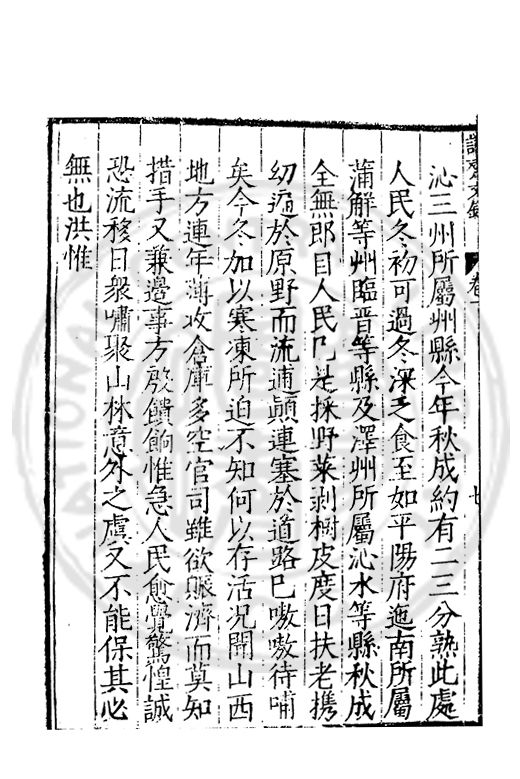 沁三州所屬州縣今年秋成約有二三分熟此處
人民冬初可過冬深乏食至如平陽府迤南所屬
蒲解等州臨晋等縣及澤州所屬沁水等縣秋成
全無即目人民已是採野菜剥樹皮度日扶老携
幼遍於原野而流逋顛連塞於道路已嗷嗷待哺
矣今冬加以寒凍所迫不知何以存活况聞山西
地方連年薄收倉庫多空官司雖欲賑濟而莫知
措手又兼邊事方殷饋餉惟急人民愈覺驚惶誠
恐流移日衆嘯聚山林意外之虞又不能保其必
無也洪惟
卷一
七